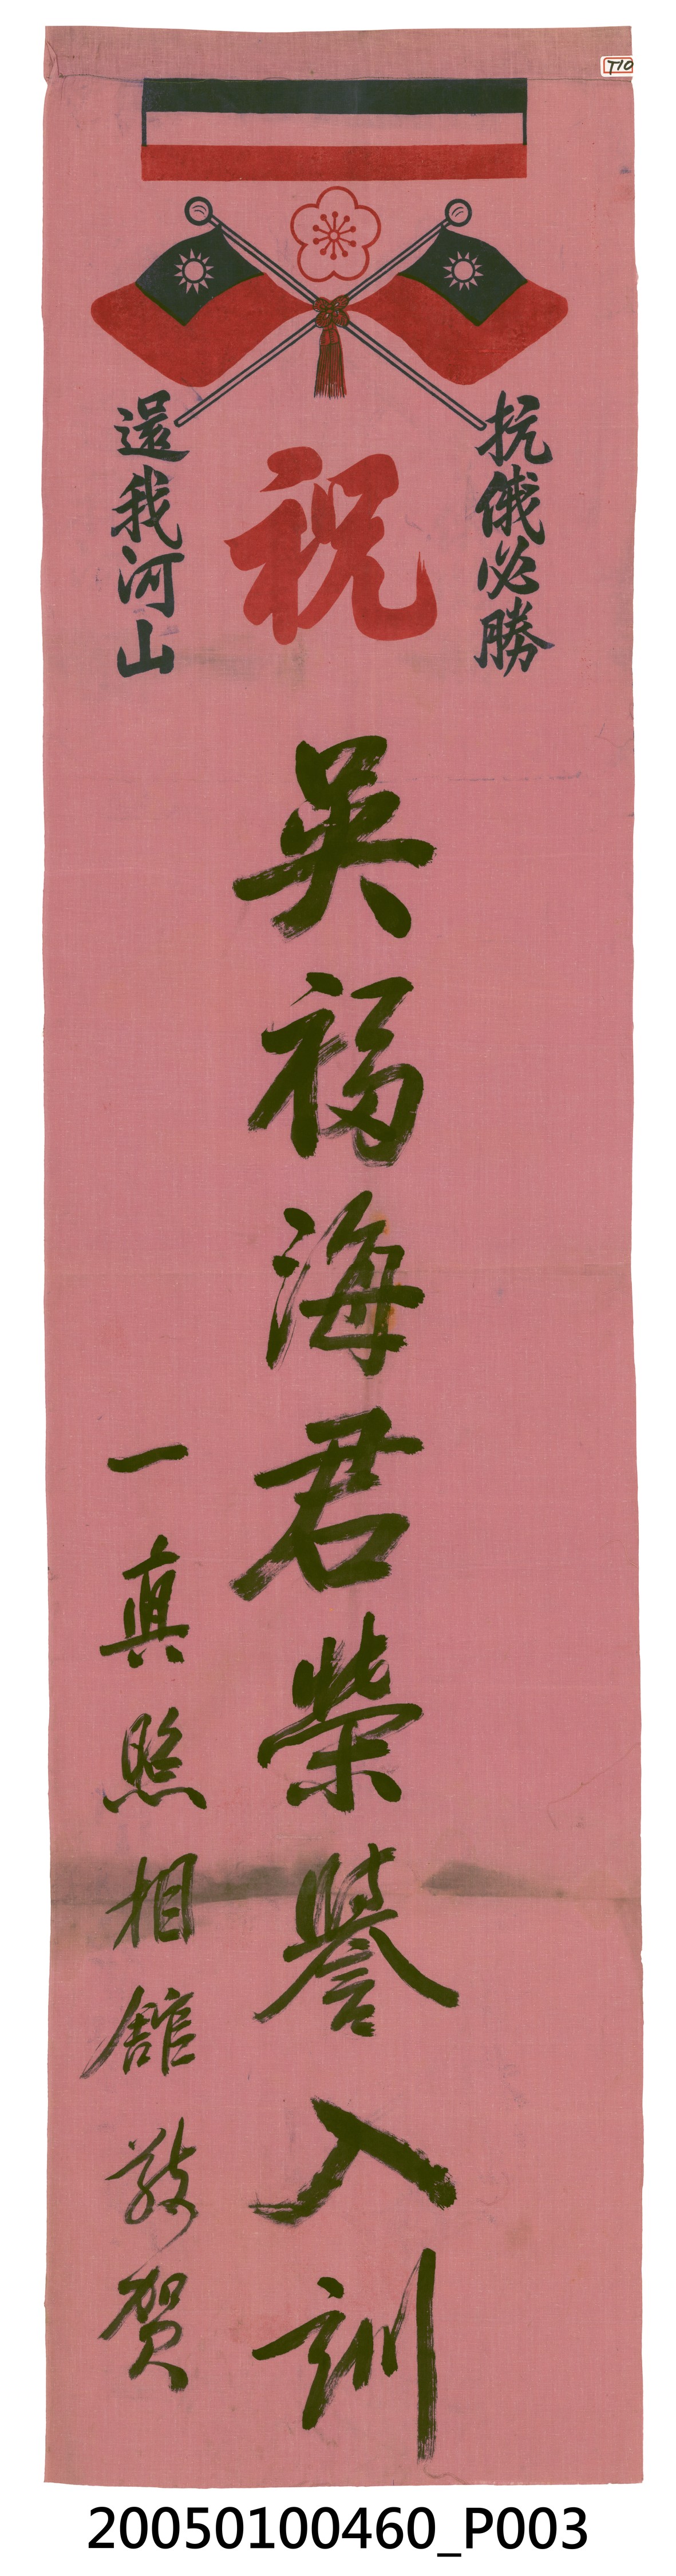 T10
抗俄必勝
祝
吳福海君榮譽入訓
還我河山
一真照相館敬賀
20050100460_P003